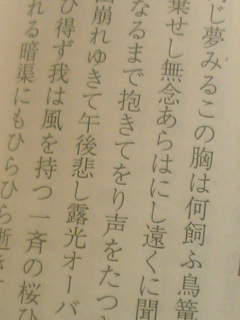 じ夢みるこの胸は何飼ふ鳥篭
乗せし無念あらはにし遠くに聞
なるまで抱きてをり声をたつ
崩れゆきて午後悲し露光オーバ
ひ得ず我は風を持つ一斉の桜ひ
れる暗渠にもひらひら逝き